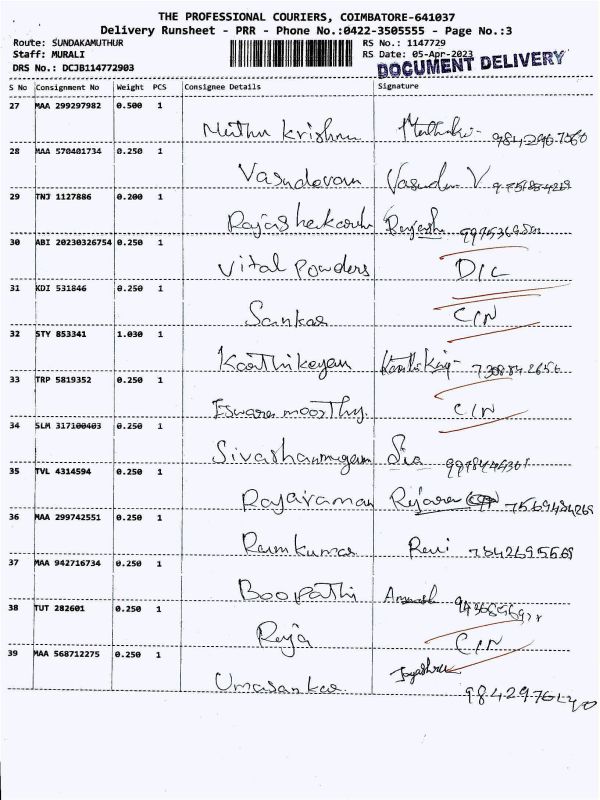 THE PROFESSIONAL COURIERS, COIMBATORE-641037
Delivery Runsheet - PRR - Phone No.:0422-3505555 - Page No.:3
Route: SUNDAKAMUTHUR RS No.: 1147729
Staff: MURALI RS Date: 05-Apr-2023
DRS No.: DCJB114772903 DOCUMENT DELIVERY
S No Consignment No Weight PCS Consignee Details Signature
27 MAA 299297982 0.500 1
Muthu Krishna
28 MAA 570401734 0.250 1
Vasudevan
29 TNJ 1127886 0.200 1
30 ABI 20230326754 0.250 1
Vital Powders D/L
31 KDI 531846 0.250 1
Sankar C/N
32 STY 853341 1.030 1
Karthikeyan
33 TRP 5819352 0.250 1
Eswara moorthy. C/N
34 SLM 317100403 0.250 1
Sivashanmugam
35 TVL 4314594 0.250 1
Rajaraman 7569484269
36 MAA 299742551 0.250 1
Ramkumar Ravi 7842695669
37 MAA 942716734 0.250 1
Boopathi
38 TUT 282601 0.250 1
Raja C/N
39 MAA 568712275 0.250 1
Umasankar